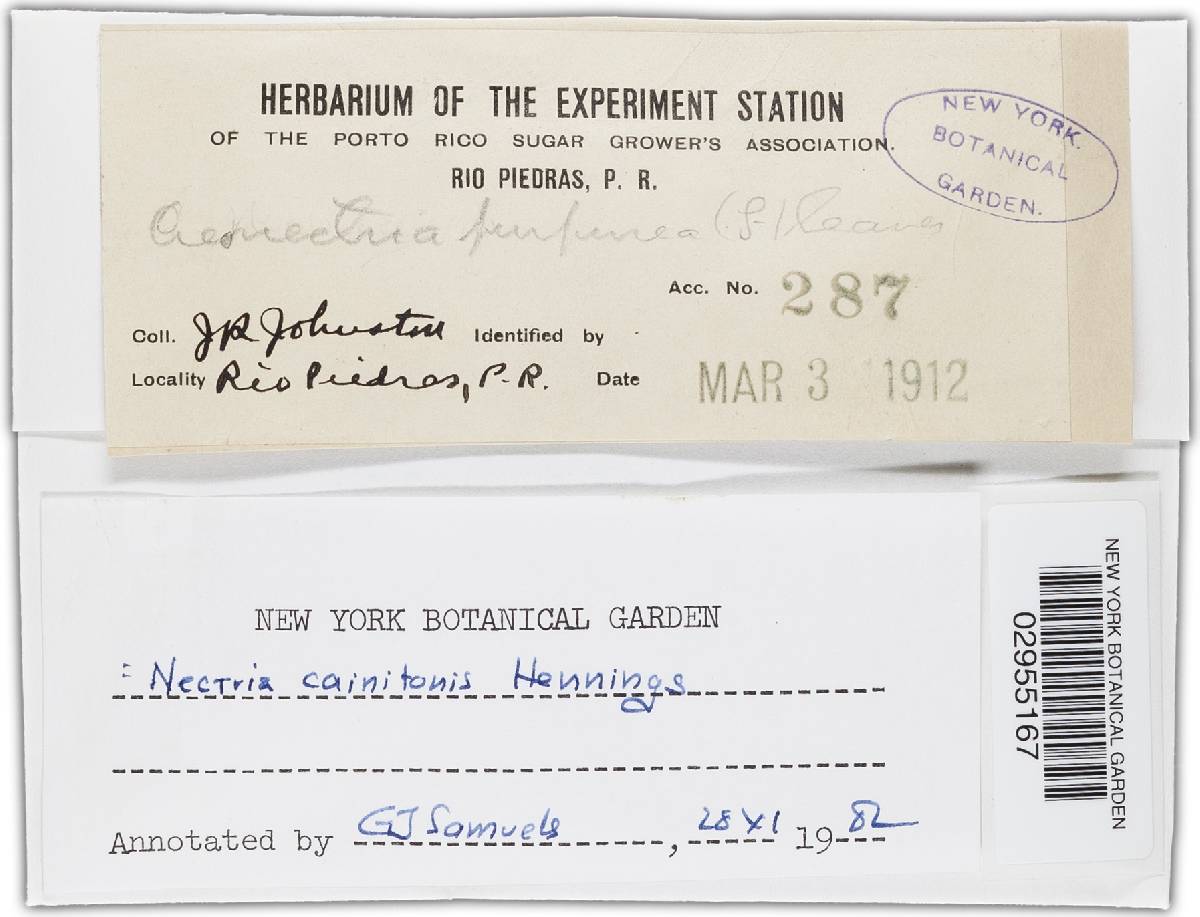 HERBARIUM OF THE EXPERIMENT STATION
OF THE PORTO RICO SUGAR GROWER'S ASSOCIATION.
RIO PIEDRAS, P. R.
NEW YORK
BOTANICAL
GARDEN.
(S.)
Acc. No. 287
Coll. JR Johnston Identified by
Locality Rio Piedras, P.R. Date MAR 3 1912
NEW YORK BOTANICAL GARDEN
= Nectria cainitonis Hennings
Annotated by GJ Samuels, 28 XI 1982
NEW YORK BOTANICAL GARDEN
02955167